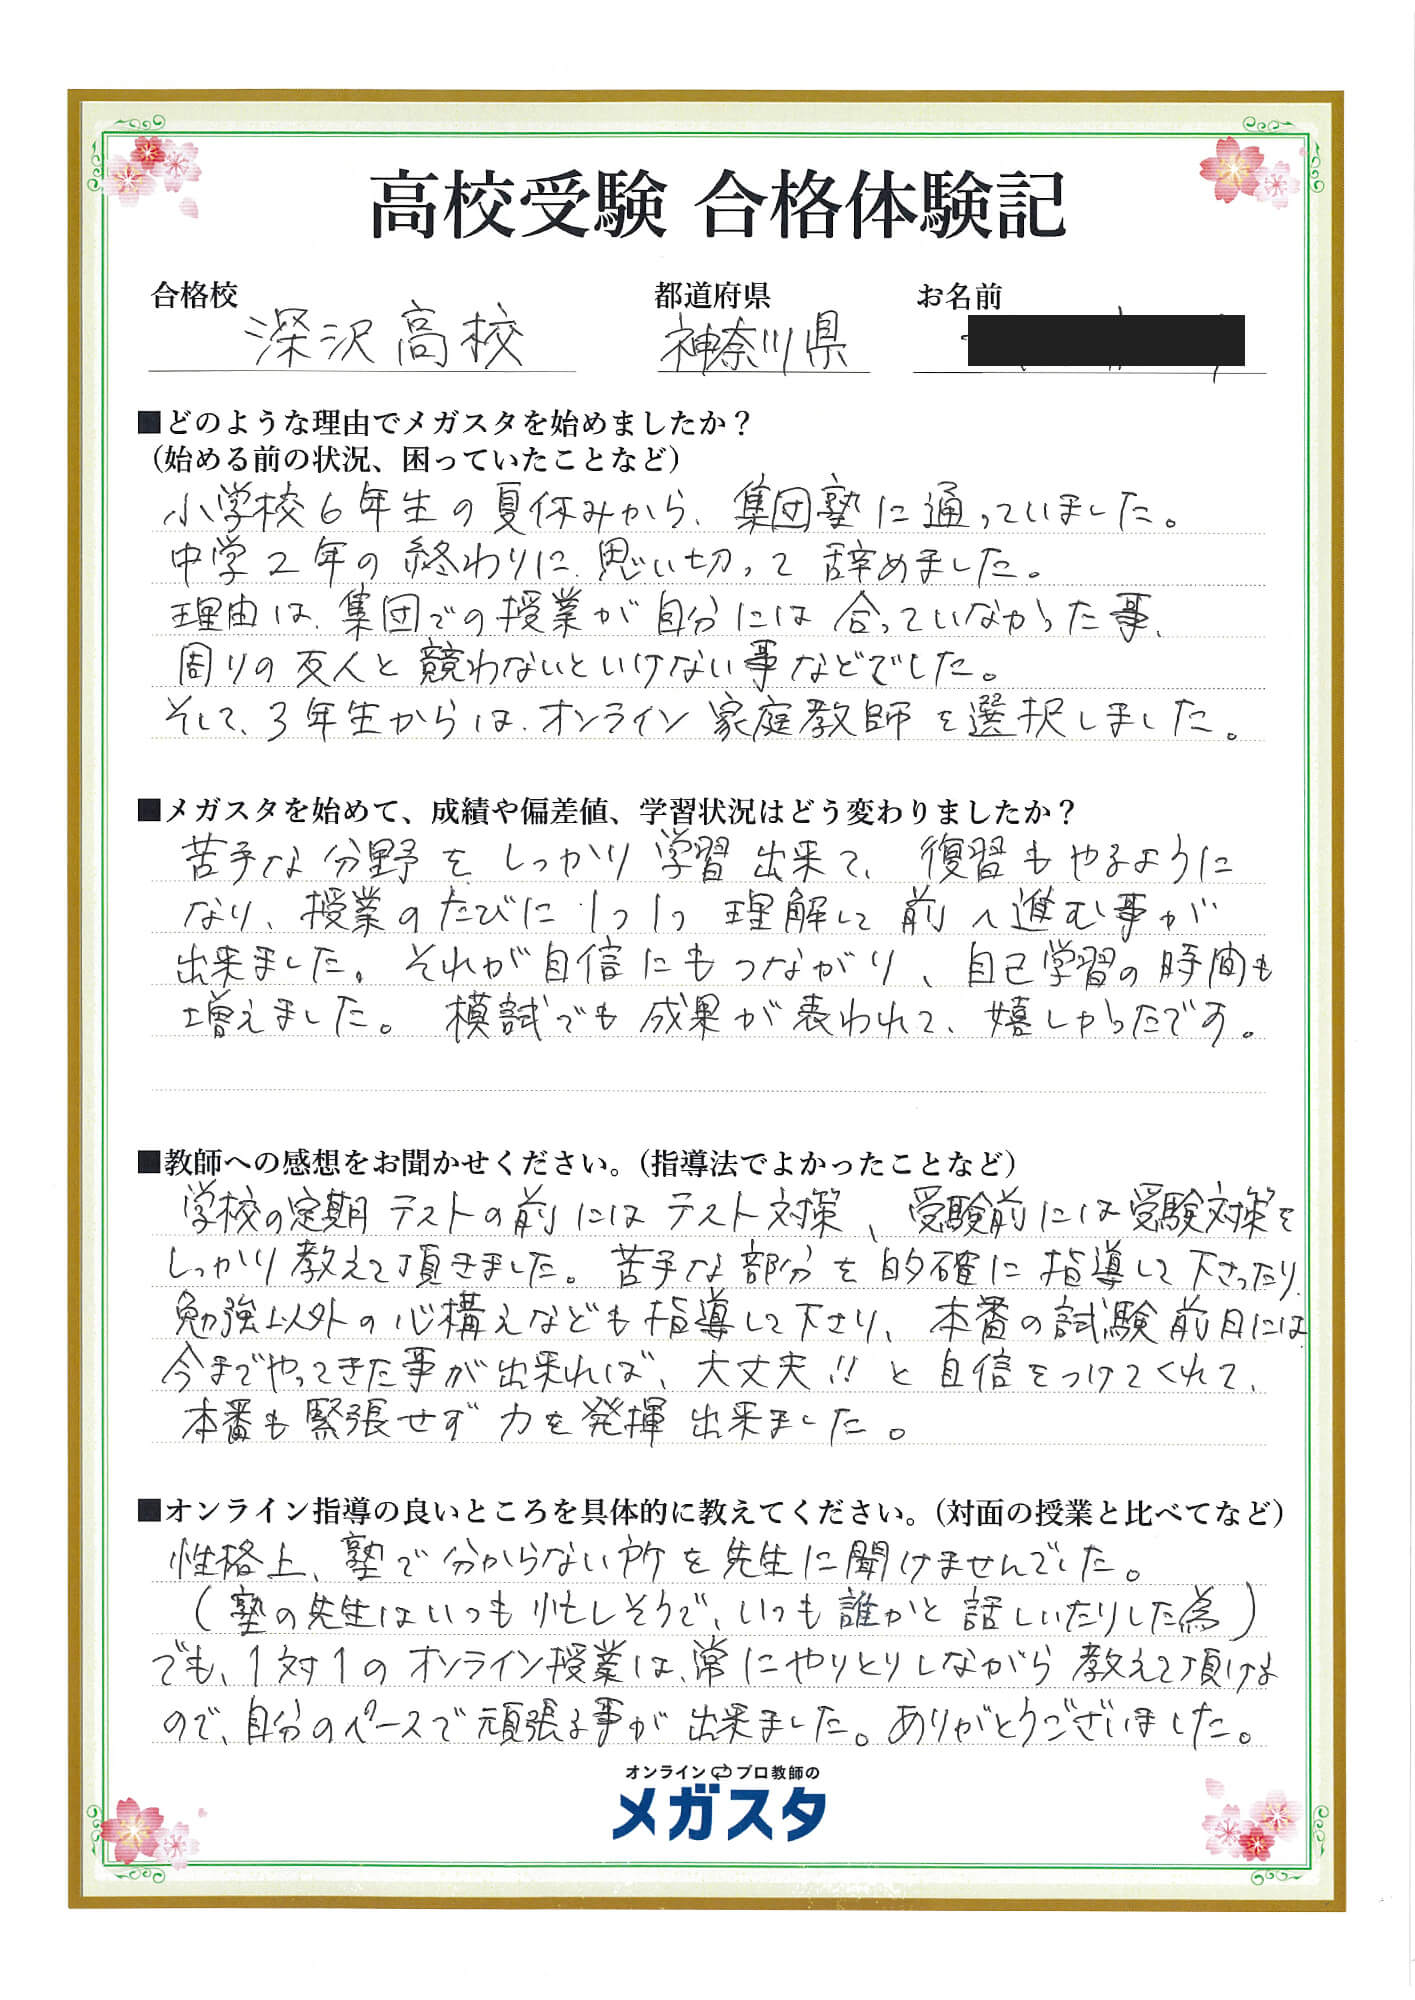 高校受験 合格体験記
合格校 都道府県 お名前
深沢高校 神奈川県
■どのような理由でメガスタを始めましたか？
（始める前の状況、困っていたことなど）
小学校6年生の夏休みから、集団塾に通っていました。
中学2年の終わりに、思い切って辞めました。
理由は、集団での授業が自分には合っていなかった事、
周りの友人と競わないといけない事などでした。
そして、3年生からは、オンライン家庭教師を選択しました。
■メガスタを始めて、成績や偏差値、学習状況はどう変わりましたか？
苦手な分野をしっかり学習出来て、復習もやるように
なり、授業のたびに1つ1つ理解して前へ進む事が
出来ました。それが自信にもつながり、自己学習の時間も
増えました。模試でも成果が表われて、嬉しかったです。
■教師への感想をお聞かせください。（指導法でよかったことなど）
学校の定期テストの前にはテスト対策、受験前には受験対策を
しっかり教えて頂きました。苦手な部分を的確に指導して下さったり、
勉強以外の心構えなども指導して下さり、本番の試験前日には
今までやってきた事が出来れば、大丈夫!!と自信をつけてくれて、
本番も緊張せず力を発揮出来ました。
■オンライン指導の良いところを具体的に教えてください。（対面の授業と比べてなど）
性格上、塾で分からない所を先生に聞けませんでした。
（塾の先生はいつも忙しそうで、いつも誰かと話しいたりした為）
でも、1対1のオンライン授業は、常にやりとりしながら教えて頂けま
ので、自分のペースで頑張る事が出来ました。ありがとうございました。
オンラインプロ教師の
メガスタ